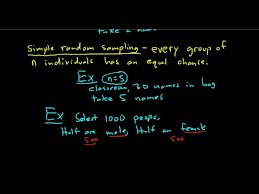 take 5 names
Simple random sampling - every group of
n individuals has an equal chance.
Ex n=5
classroom, 30 names in bag
take 5 names
Ex Select 1000 people.
Half are male, Half are female
500 500